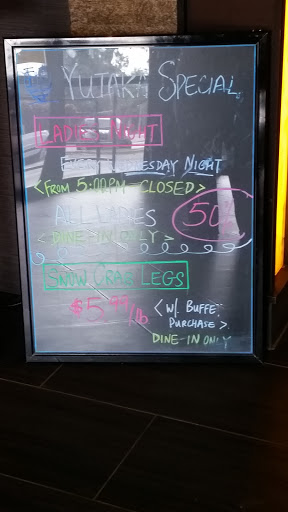 YUTAKA SPECIAL
LADIES NIGHT
EVERY WEDNESDAY NIGHT
<FROM 5:00PM - CLOSED>
ALL LADIES 50%
<DINE-IN ONLY>
SNOW CRAB LEGS
$5.99/lb <W/. BUFFET
PURCHASE>.
DINE-IN ONLY